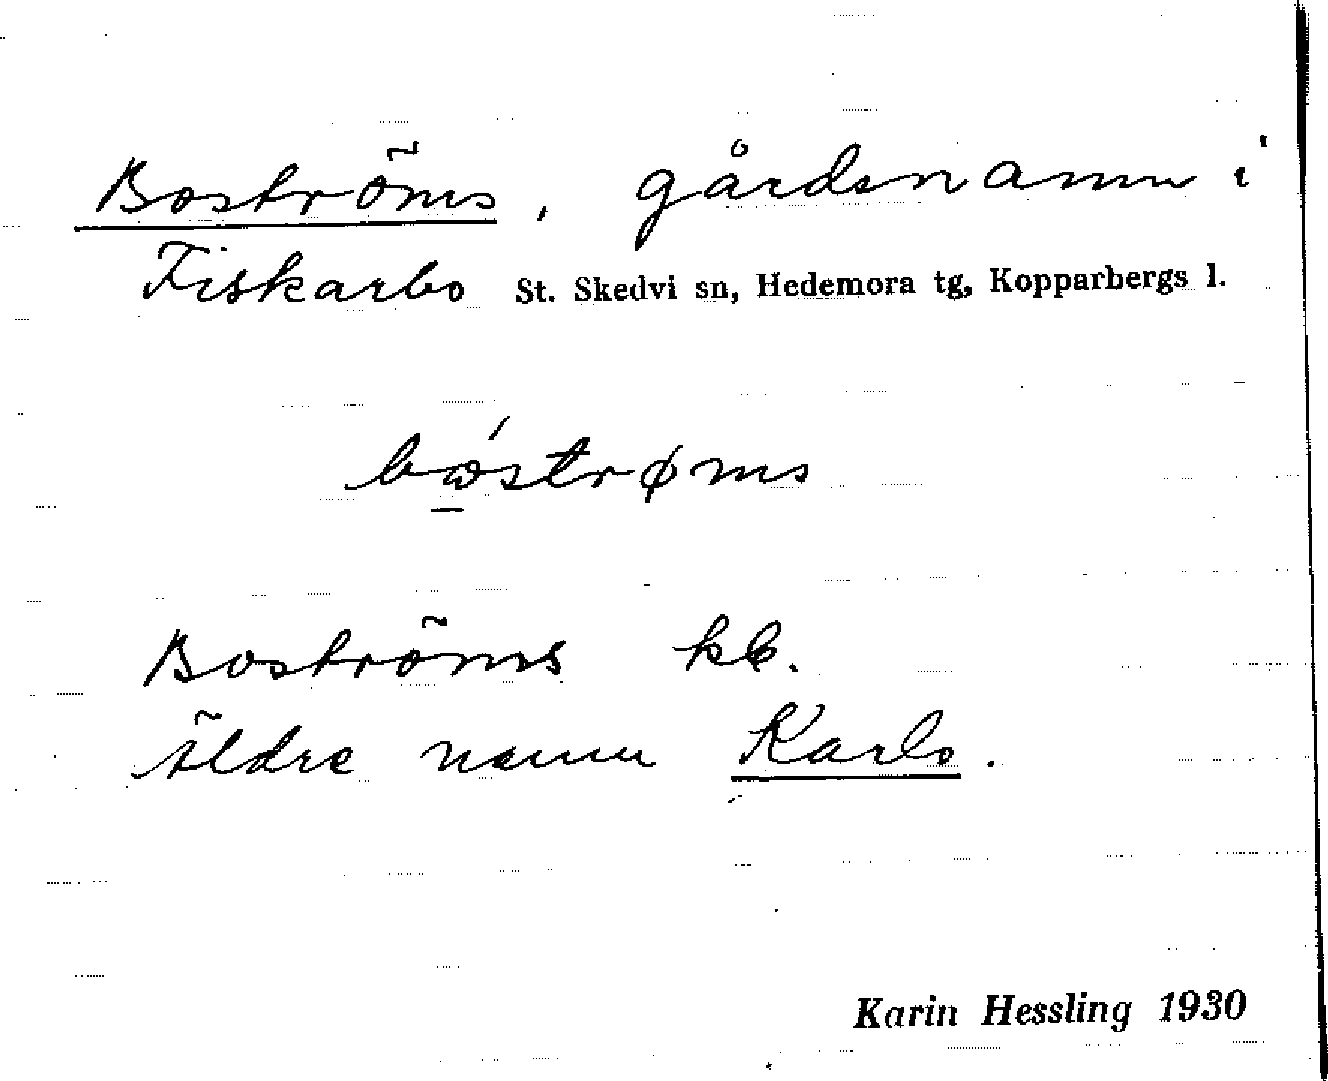 Boströms, gårdsnamn i
Fiskarbo St. Skedvi sn, Hedemora tg, Kopparbergs l.
bωstrøms
Boströms kb.
Äldre namn Karls.
Karin Hessling 1930